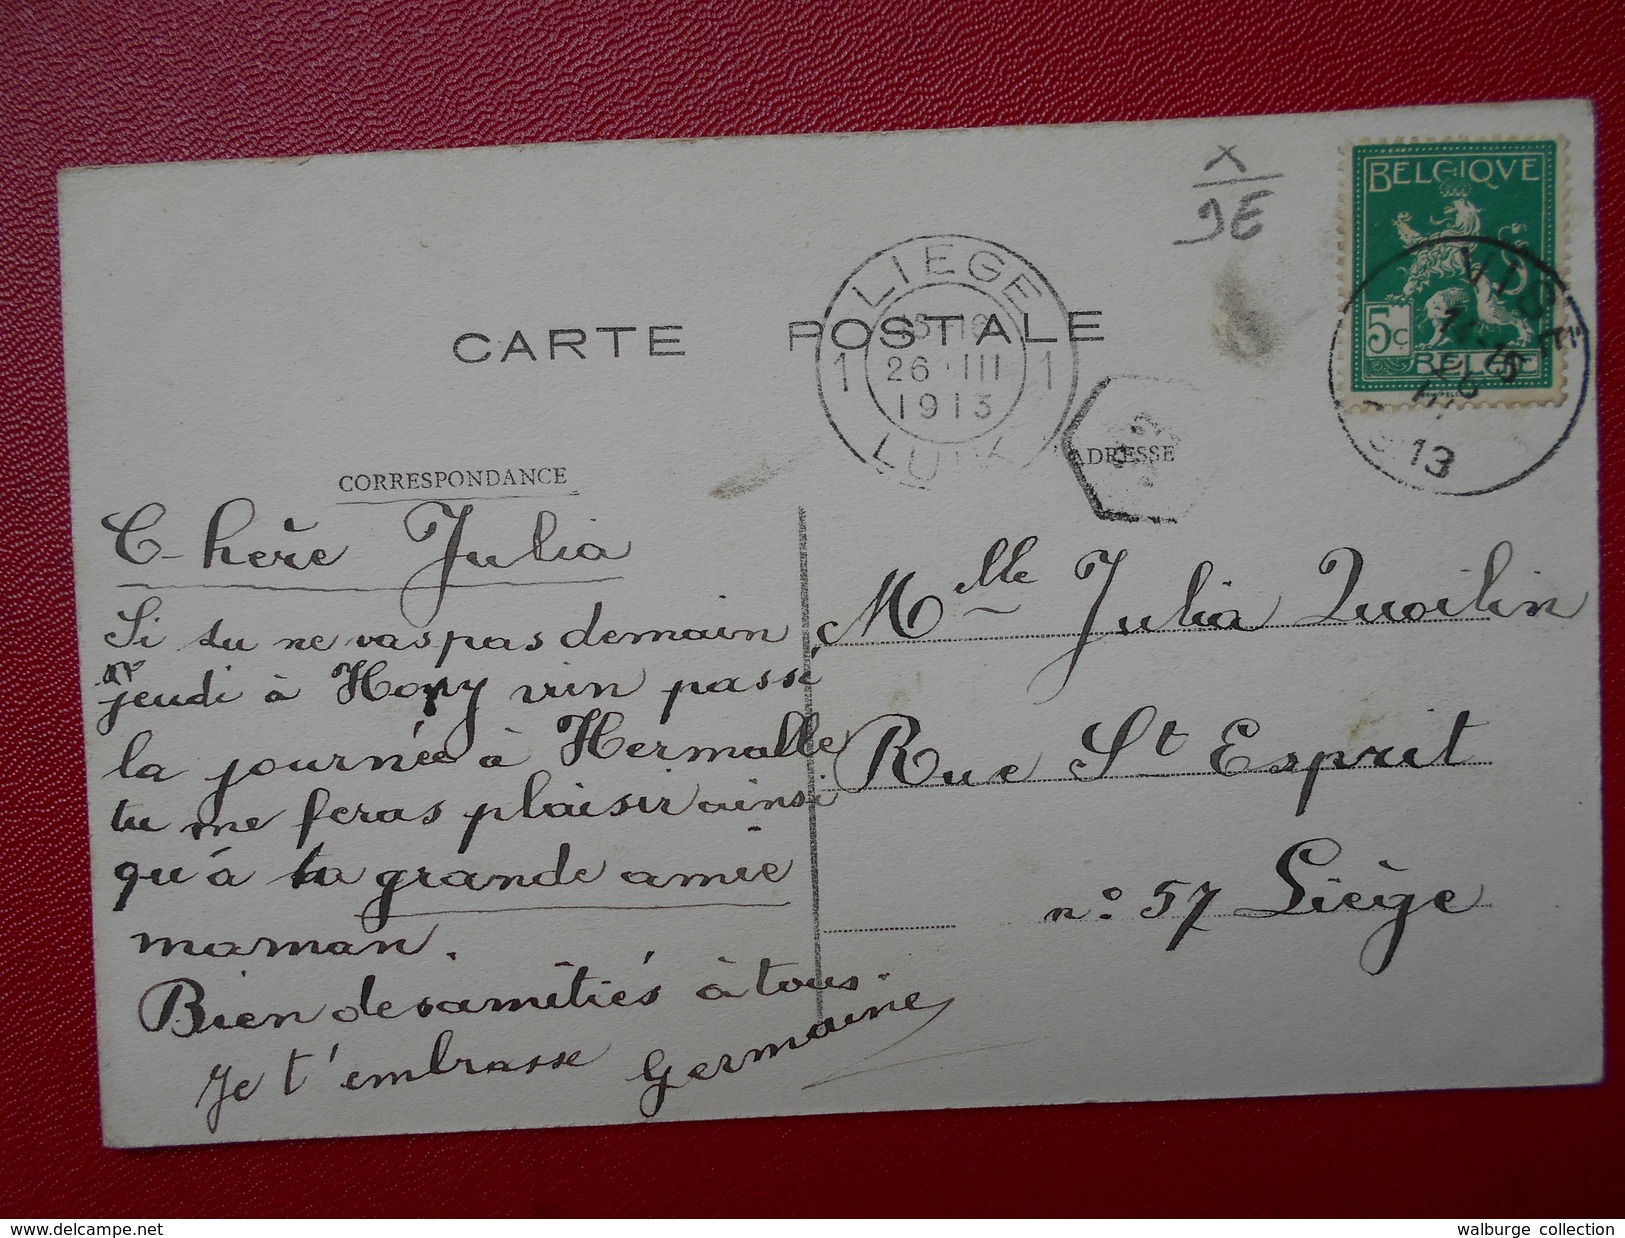 X
9E
BELGIQUE
5c
BELGIE
VISE
13
LIEGE
1 26·III 1
1913
LUIK
CARTE POSTALE
CORRESPONDANCE
ADRESSE
Chère Julia
Si tu ne vas pas demain
jeudi à Hony vien passé
la journée à Hermalle
tu me feras plaisir ainsi
qu'à ta grande amie
maman.
Bien des amitiés à tous.
Je t'embrasse Germaine
Mlle Julia Quoilin
Rue St Esprit
n° 57 Liège
delcampe.net
walburge collection